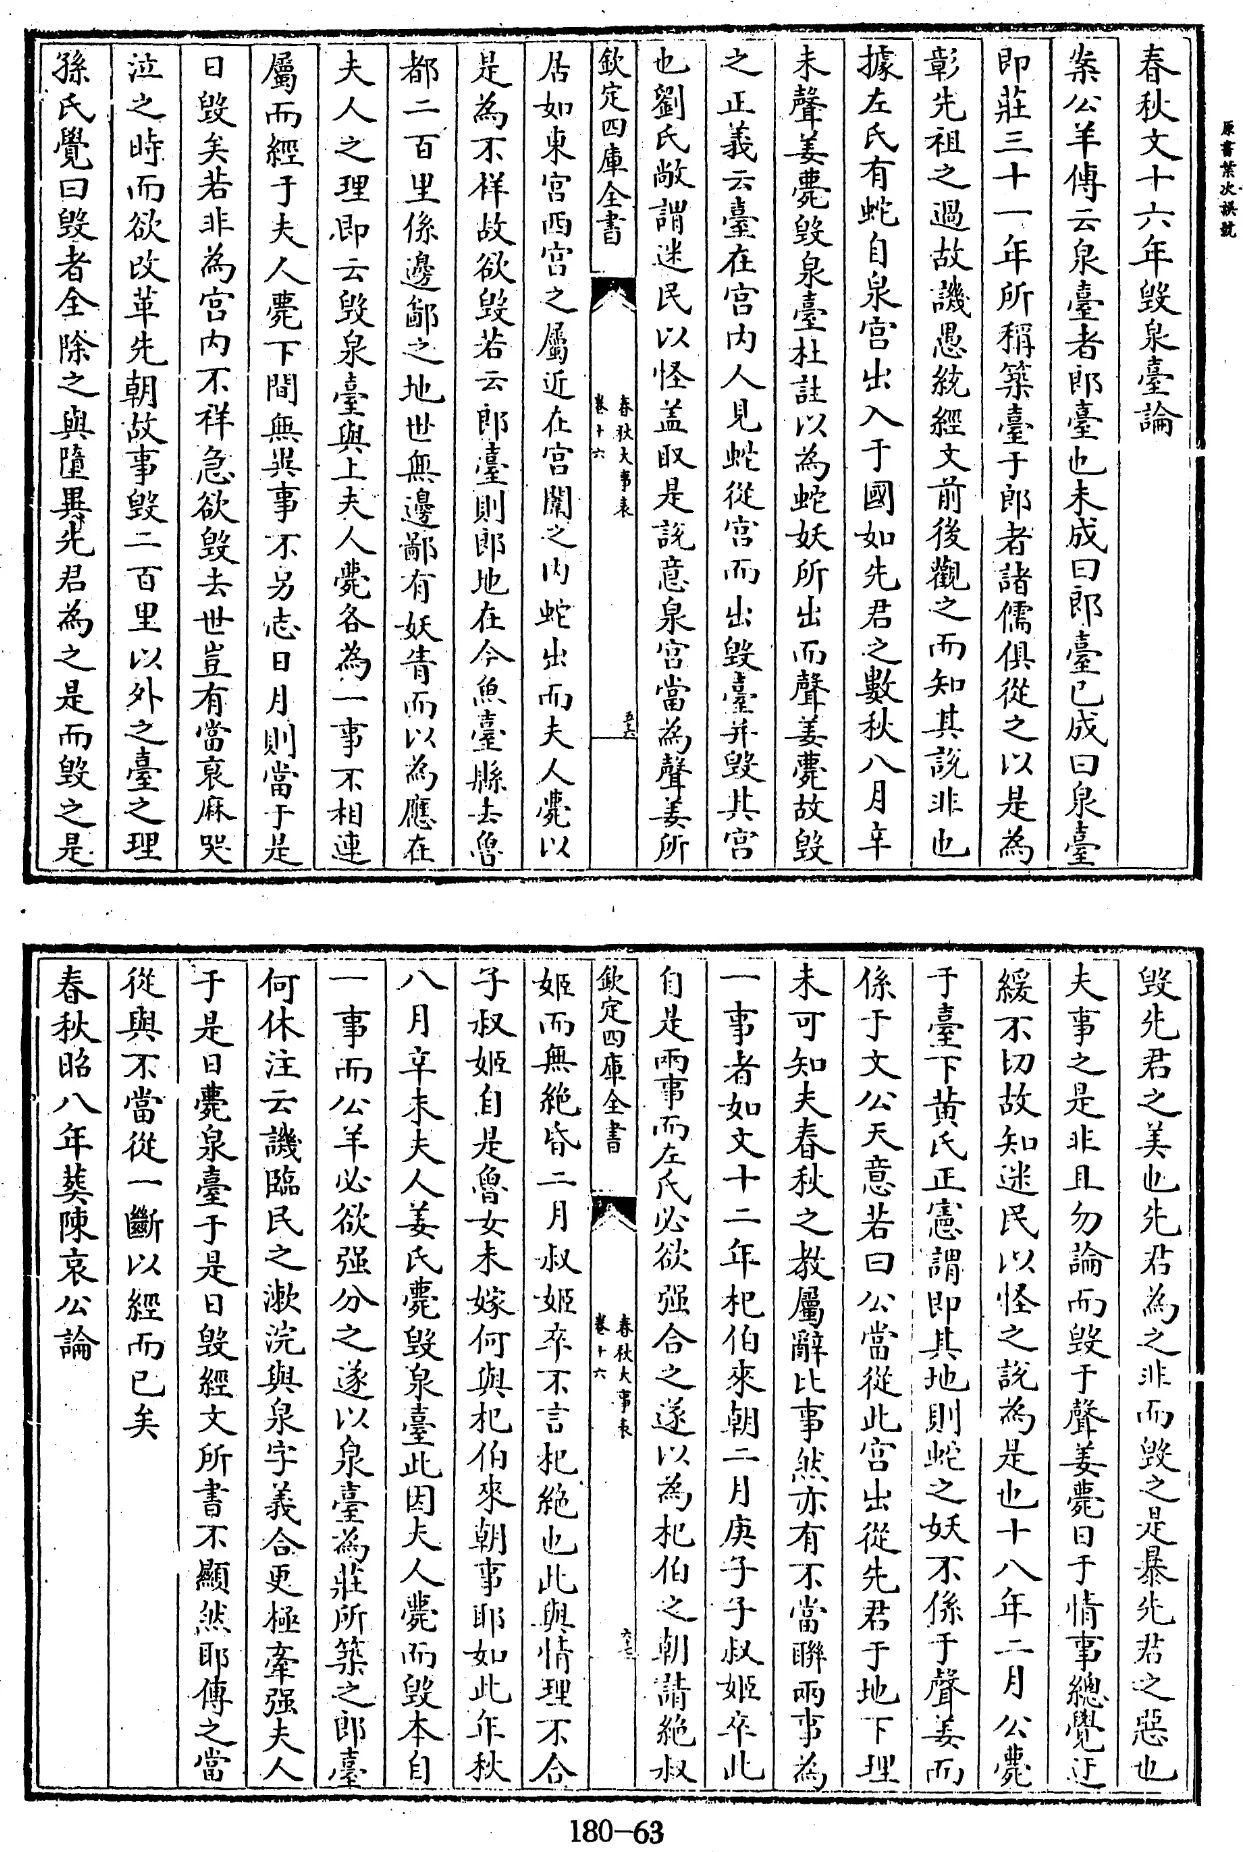 原書葉次誤號
春秋文十六年毀泉臺論
案公羊傳云泉臺者郎臺也未成曰郎臺已成曰泉臺
即莊三十一年所稱築臺于郎者諸儒俱從之以是為
彰先祖之過故譏愚統經文前後觀之而知其說非也
據左氏有蛇自泉宮出入于國如先君之數秋八月辛
未聲姜薨毀泉臺杜註以為蛇妖所出而聲姜薨故毀
之正義云臺在宮內人見蛇從宮而出毀臺并毀其宮
也劉氏敞謂迷民以怪蓋取是說意泉宮當為聲姜所
欽定四庫全書
春秋大事表
卷十六
居如東宮西宮之屬近在宮闈之內蛇出而夫人薨以
是為不祥故欲毀若云郎臺則郎地在今魚臺縣去魯
都二百里係邊鄙之地世無邊鄙有妖眚而以為應在
夫人之理即云毀泉臺與上夫人薨各為一事不相連
屬而經于夫人薨下間無異事不另志日月則當于是
日毀矣若非為宮內不祥急欲毀去世豈有當哀麻哭
泣之時而欲改革先朝故事毀二百里以外之臺之理
孫氏覺曰毀者全除之與墮異先君為之是而毀之是
毀先君之美也先君為之非而毀之是暴先君之惡也
夫事之是非且勿論而毀于聲姜薨日于情事總覺迂
緩不切故知迷民以怪之說為是也十八年二月公薨
于臺下黃氏正憲謂即其地則蛇之妖不係于聲姜而
係于文公天意若曰公當從此宮出從先君于地下理
未可知夫春秋之教屬辭比事然亦有不當聯兩事為
一事者如文十二年杞伯來朝二月庚子子叔姬卒此
自是兩事而左氏必欲强合之遂以為杞伯之朝請絶叔
欽定四庫全書
春秋大事表
卷十六
姬而無絶昏二月叔姬卒不言杞絶也此與情理不合
子叔姬自是魯女未嫁何與杞伯來朝事耶如此年秋
八月辛未夫人姜氏薨毀泉臺此因夫人薨而毀本自
一事而公羊必欲强分之遂以泉臺為莊所築之郎臺
何休注云譏臨民之漱浣與泉字義合更極牽强夫人
于是日薨泉臺于是日毀經文所書不顯然耶傳之當
從與不當從一斷以經而已矣
春秋昭八年葬陳哀公論
180-63